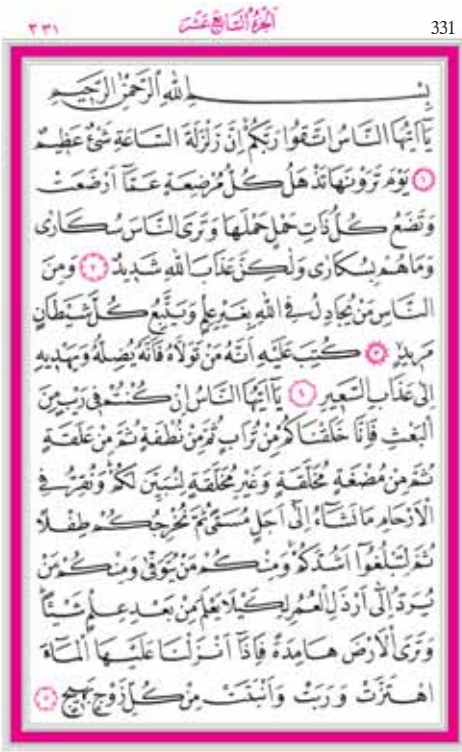 ٣٣١ اَلْجُزْءُ السَّابِعَ عَشَرَ 331
بِسْــــــمِ اللهِ الرَّحْمٰنِ الرَّحِيمِ
يَٓا اَيُّهَا النَّاسُ اتَّقُوا رَبَّكُمْ اِنَّ زَلْزَلَةَ السَّاعَةِ شَيْءٌ عَظِيمٌ
﴿١﴾ يَوْمَ تَرَوْنَهَا تَذْهَلُ كُلُّ مُرْضِعَةٍ عَمَّٓا اَرْضَعَتْ
وَتَضَعُ كُلُّ ذَاتِ حَمْلٍ حَمْلَهَا وَتَرَى النَّاسَ سُكَارٰى
وَمَا هُمْ بِسُكَارٰى وَلٰكِنَّ عَذَابَ اللهِ شَدِيدٌ ﴿٢﴾ وَمِنَ
النَّاسِ مَنْ يُجَادِلُ فِي اللهِ بِغَيْرِ عِلْمٍ وَيَتَّبِعُ كُلَّ شَيْطَانٍ
مَرِيدٍ ﴿٣﴾ كُتِبَ عَلَيْهِ اَنَّهُ مَنْ تَوَلَّاهُ فَاَنَّهُ يُضِلُّهُ وَيَهْدِيهِ
اِلٰى عَذَابِ السَّعِيرِ ﴿٤﴾ يَٓا اَيُّهَا النَّاسُ اِنْ كُنْتُمْ فِي رَيْبٍ مِنَ
الْبَعْثِ فَاِنَّا خَلَقْنَاكُمْ مِنْ تُرَابٍ ثُمَّ مِنْ نُطْفَةٍ ثُمَّ مِنْ عَلَقَةٍ
ثُمَّ مِنْ مُضْغَةٍ مُخَلَّقَةٍ وَغَيْرِ مُخَلَّقَةٍ لِنُبَيِّنَ لَكُمْ وَنُقِرُّ فِي
الْاَرْحَامِ مَا نَشَٓاءُ اِلٰٓى اَجَلٍ مُسَمًّى ثُمَّ نُخْرِجُكُمْ طِفْلًا
ثُمَّ لِتَبْلُغُٓوا اَشُدَّكُمْ وَمِنْكُمْ مَنْ يُتَوَفّٰى وَمِنْكُمْ مَنْ
يُرَدُّ اِلٰٓى اَرْذَلِ الْعُمُرِ لِكَيْلَا يَعْلَمَ مِنْ بَعْدِ عِلْمٍ شَيْـًٔا
وَتَرَى الْاَرْضَ هَامِدَةً فَاِذَٓا اَنْزَلْنَا عَلَيْهَا الْمَٓاءَ
اهْتَزَّتْ وَرَبَتْ وَاَنْبَتَتْ مِنْ كُلِّ زَوْجٍ بَهِيجٍ ﴿٥﴾